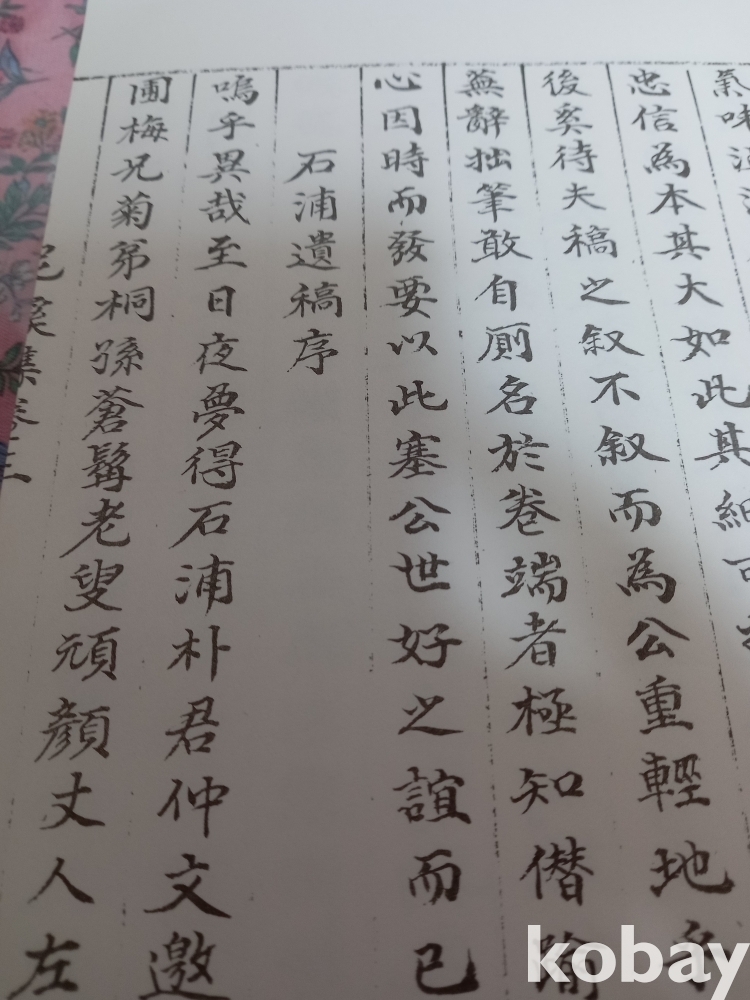 氣味
忠信為本其大如此其細可
後奚待夫稿之叙不叙而為公重輕地乎
蕪辭拙筆敢自厠名於卷端者極知僭踰
心因時而發要以此塞公世好之誼而已
石浦遺稿序
嗚乎異哉至日夜夢得石浦朴君仲文邀
圃梅兄菊弟桐孫蒼髯老叟頑顏丈人左
集卷三
kobay